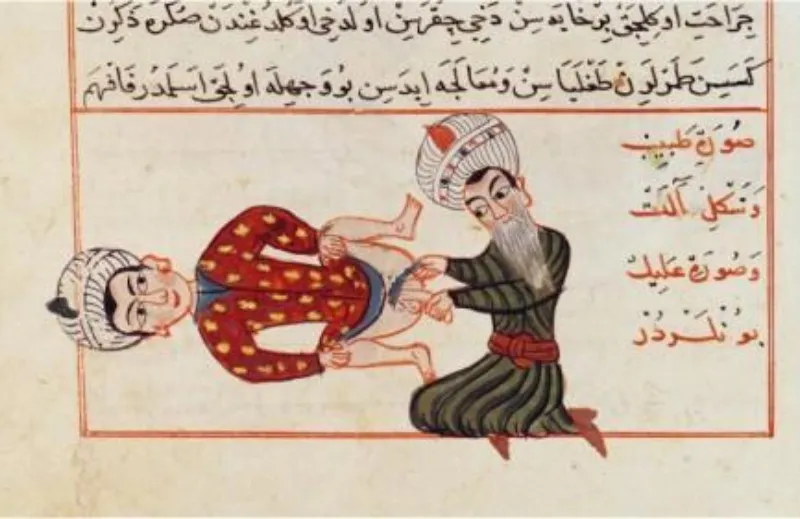 جراحت اولیجق بر خایه سن دخی چیقرهسن اولدخی اوکلدغندن صکره ذکرون
کسسین طمرلرون طغلیاسن ومعالجه ایدسن بو وجهله اولیجق اسلمدر فافهم
صورة طبیب
وشکل آلت
وصورة علیل
بونلردر